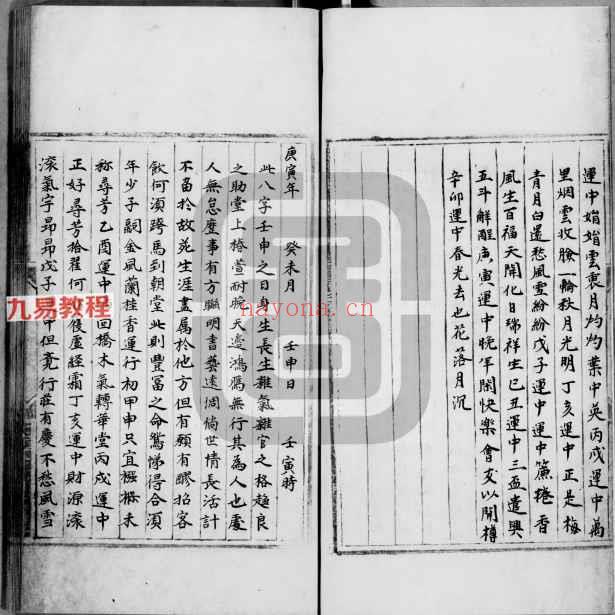 運中娟娟雲裏月灼灼葉中英丙戌運中萬
里烟雲收臉一輪秋月光明丁亥運中正是梅
青月白還愁風雪紛紛戊子運中運中簾捲香
風生百福天開化日瑞祥生己丑運中三盃遣興
五斗解酲庚寅運中晚年閑快樂會友以開樽
辛卯運中春光去也花落月沉
庚寅年 癸未月 壬申日 壬寅時
此八字壬申之日身生長生雜氣雜官之格趙良
之助堂上椿萱耐晚天邊鴻鴈無行其為人也處
人無怠庶事有方聰明書藝遠倜倘世情長活計
不畄於故苑生涯盡属於他方但有願有醪招客
飲何須跨馬到朝堂此則豐富之命鴛悌得合須
年少子嗣金風蘭桂香運行初甲申只宜襁褓未
称尋芳乙酉運中回橋木氣轉華堂丙戌運中
正好尋芳拾翠何如後蘆經霜丁亥運中財源滚
滚氣宇昻昻戊子 中但竟行莊有慶不愁風雪
九易教程
nayona.cn